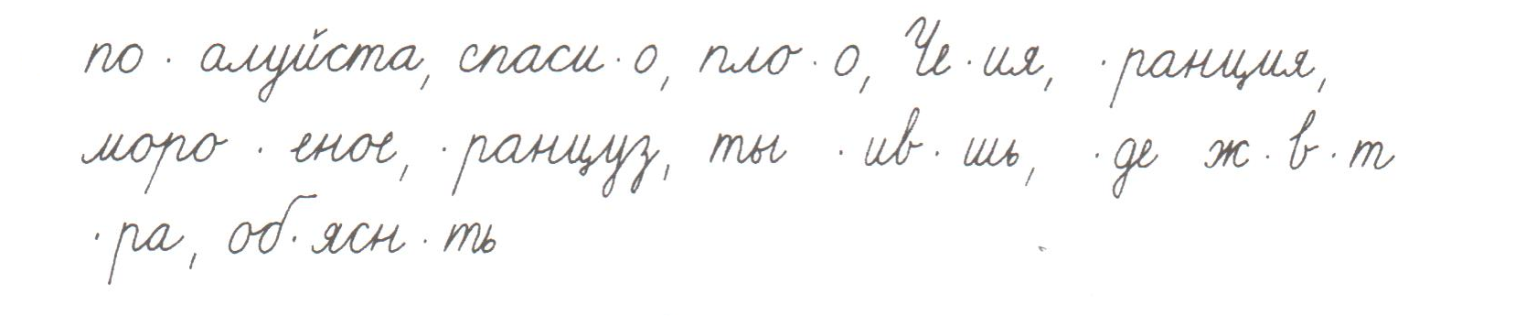 по · алуйста, спаси · о, пло · о, Че · ия, · ранция,
моро · еное, · ранцуз, ты · ив · шь, · де ж · в · т
· ра, об · ясн · ть